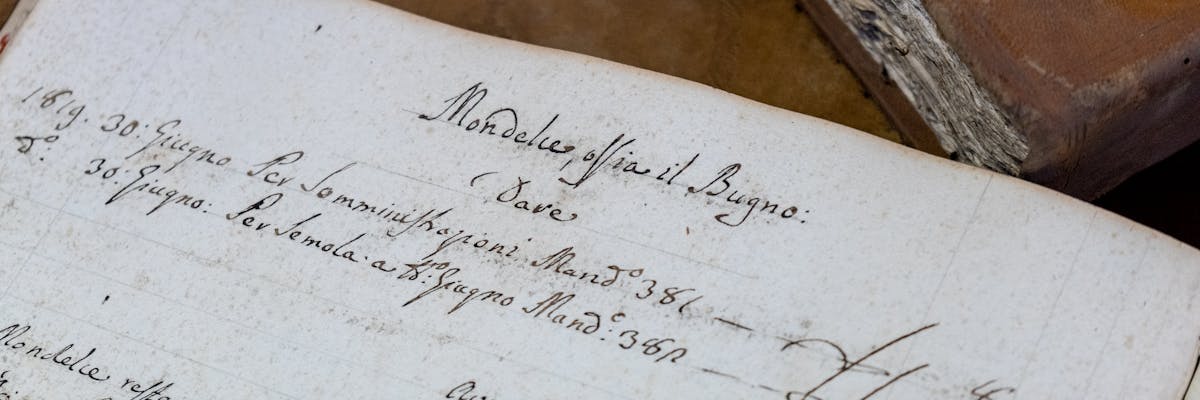 Mondelce, ossia il Bugno:
Dare
1819. 30: Giugno Per Somministrazioni Mand.º 381 —
d.º 30. Giugno: Per Semola a Giugno Mand.º: 382 —
Mondelce resta